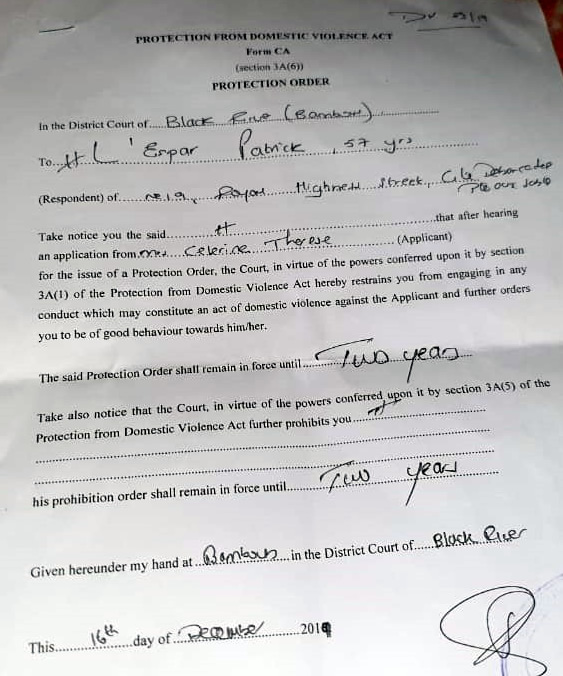 PROTECTION FROM DOMESTIC VIOLENCE ACT
Form CA
(section 3A(6))
PROTECTION ORDER
In the District Court of.....Black River (Bambous)
To... L'Espar Patrick, 57 yrs
(Respondent) of......No 19, Royal Highness Street, Cité
Take notice you the said..............that after hearing
an application from Mrs Celerine Therese (Applicant)
for the issue of a Protection Order, the Court, in virtue of the powers conferred upon it by section
3A(1) of the Protection from Domestic Violence Act hereby restrains you from engaging in any
conduct which may constitute an act of domestic violence against the Applicant and further orders
you to be of good behaviour towards him/her.
The said Protection Order shall remain in force until...Two years
Take also notice that the Court, in virtue of the powers conferred upon it by section 3A(5) of the
Protection from Domestic Violence Act further prohibits you
his prohibition order shall remain in force until......Two years
Given hereunder my hand at ..Bambous... in the District Court of.....Black River
This..........16th....day of..December..........2019